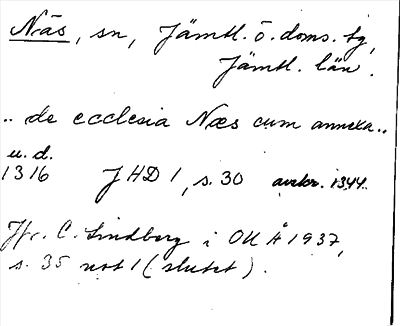 Näs, sn, Jämtl. ö. doms. tg,
Jämtl. län.
.. de ecclesia Næs cum annexa..
u. d.
1316 JHD 1, s. 30 avskr. 1344.
Jfr. C. Lindberg i OUÅ 1937,
s. 35 not 1 (slutet).